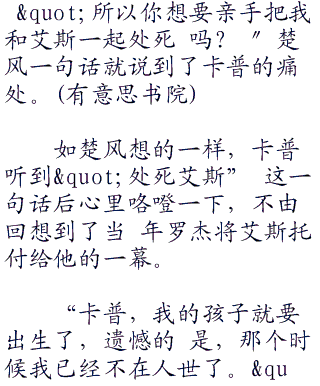 &quot;所以你想要亲手把我
和艾斯一起处死 吗？〞楚
风一句话就说到了卡普的痛
处。(有意思书院)
如楚风想的一样，卡普
听到&quot;处死艾斯” 这一
句话后心里咯噔一下，不由
回想到了当 年罗杰将艾斯托
付给他的一幕。
“卡普，我的孩子就要
出生了，遗憾的 是，那个时
候我已经不在人世了。&qu